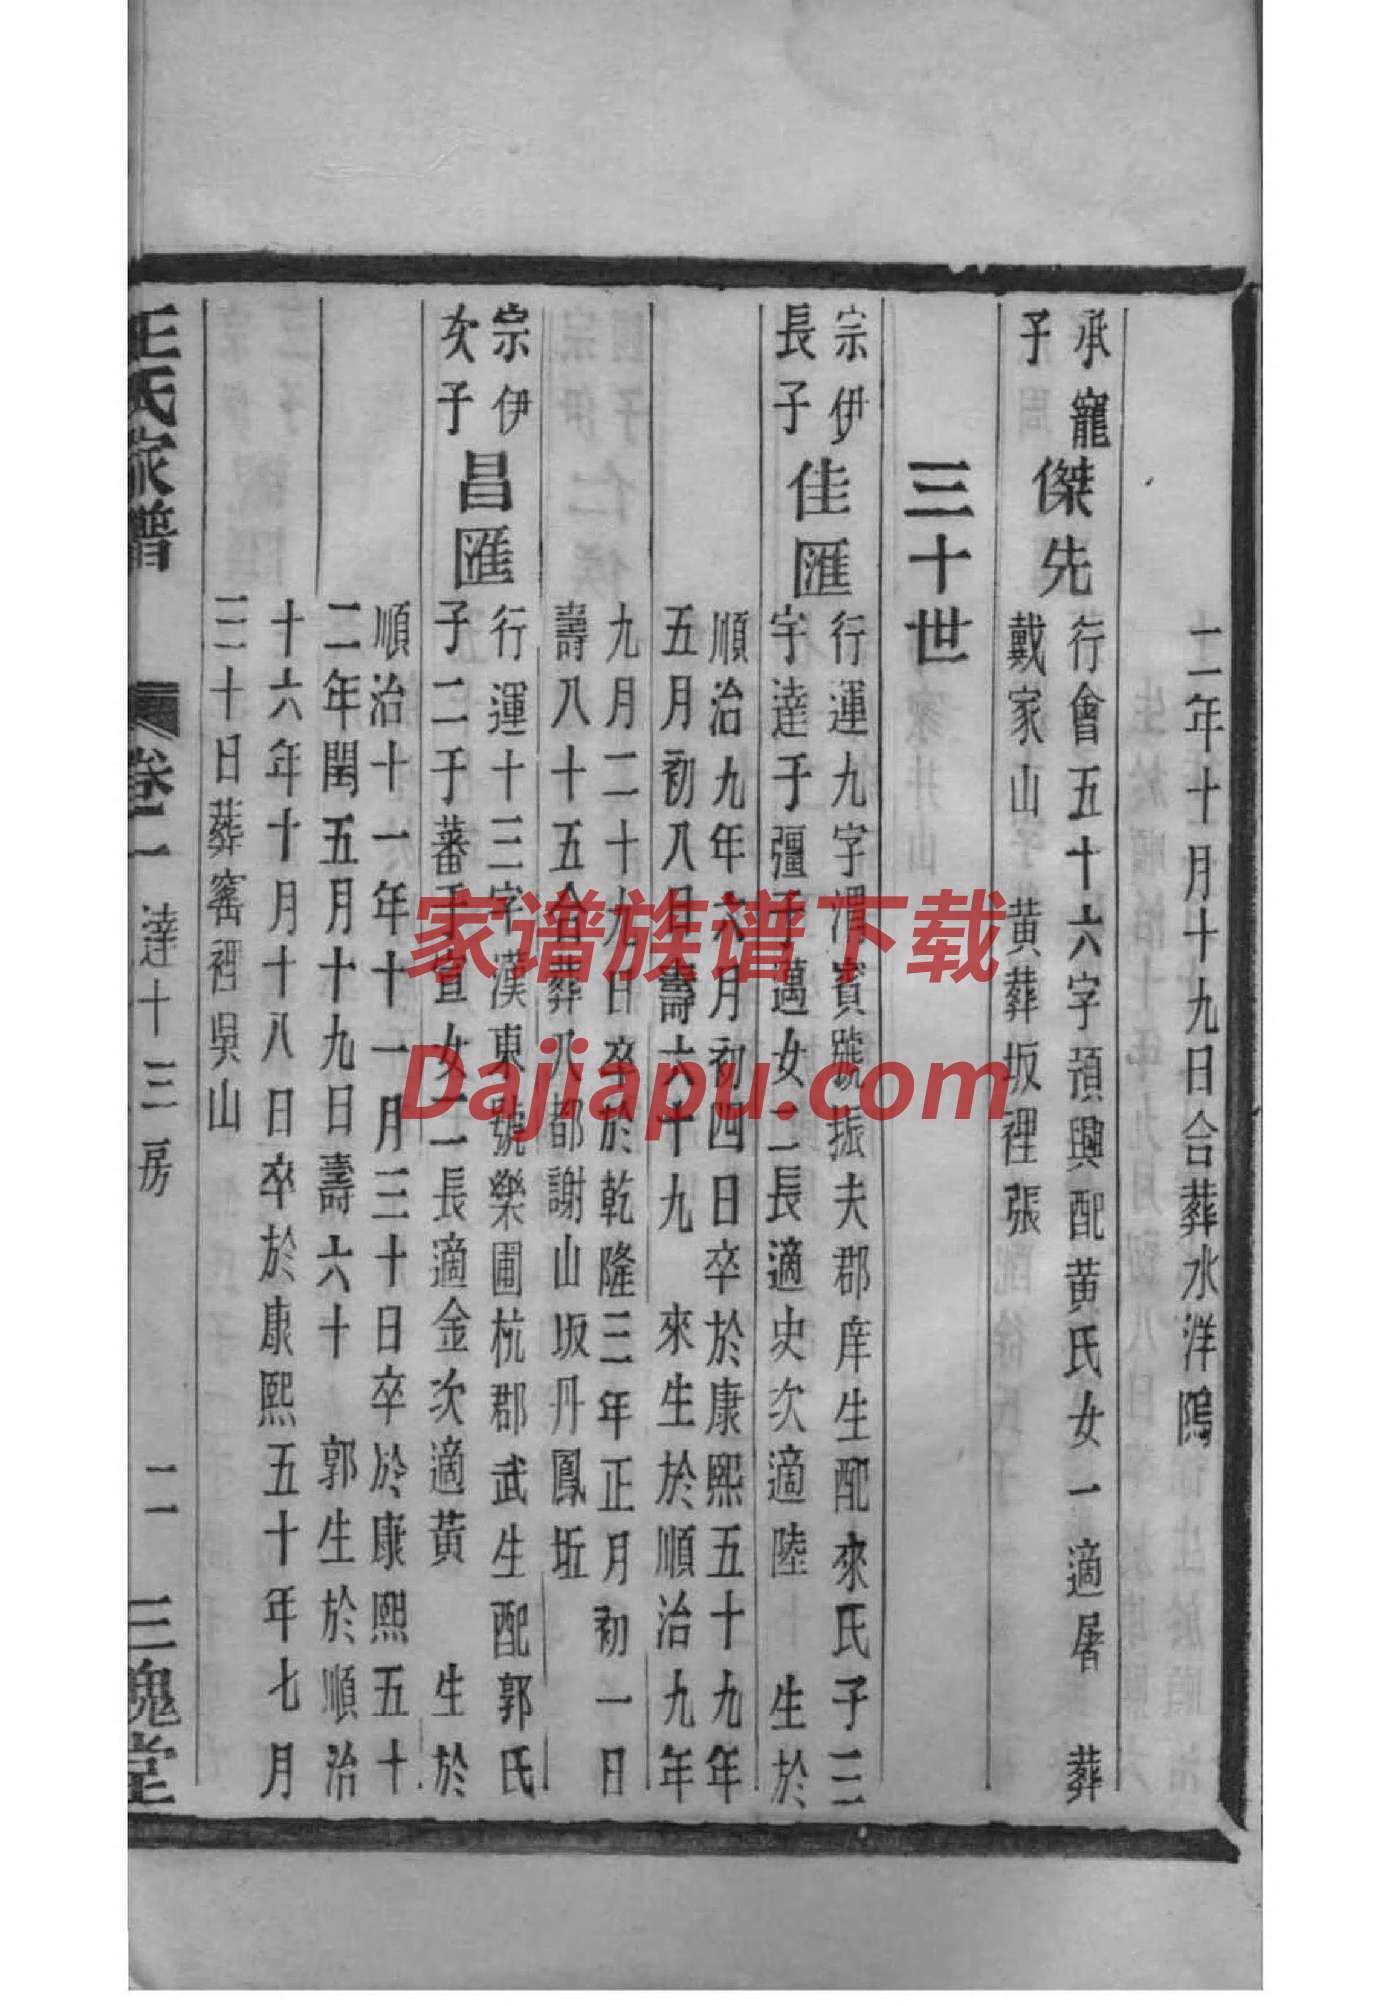 二年十月十九日合葬水洋隝
承寵
子
傑先
行會五十六字預興配黄氏女一適屠　葬
戴家山　子黄葬坂裡張
三十世
宗伊
長子
佳匯
行運九字渭賓號振夫郡庠生配來氏子三
宇達于疆于邁女二長適史次適陸　生於
順治九年六月初四日卒於康熙五十九年
五月初八日壽六十九　來生於順治九年
九月二十九日卒於乾隆三年正月初一日
壽八十五合葬八都謝山坂丹鳳坵
宗伊
次子
昌匯
行運十三字漢東號樂圃杭郡武生配郭氏
子二于蕃于宣女二長適金次適黄　生於
順治十一年十一月三十日卒於康熙五十
二年閏五月十九日壽六十　郭生於順治
十六年十月十八日卒於康熙五十年七月
三十日葬窰裡吳山
王氏家譜
卷二　達十三房　二　三槐堂
家谱族谱下载
Dajiapu.com